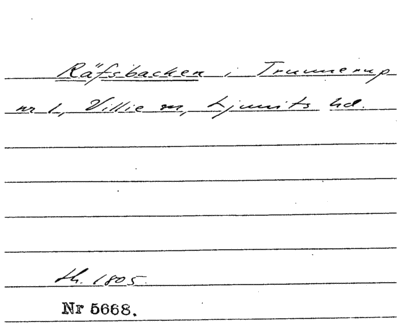 Räfsbacken i Trunnerup
nr 1, Villie sn, Ljunits hd.
th. 1805.
Nr 5668.